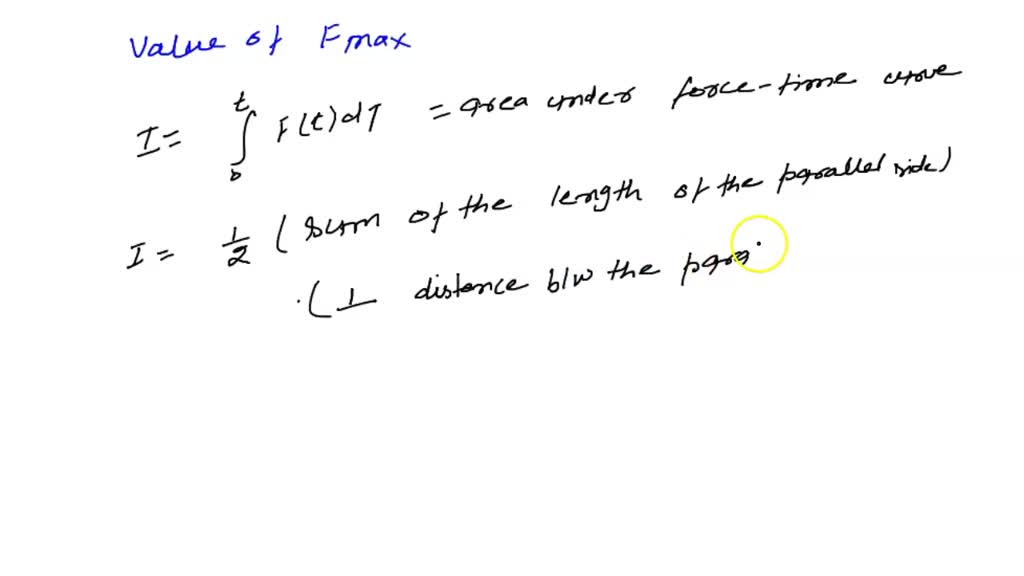 Value of Fmax
I = ∫₀ᵗ F(t)dT = area under force-time curve
I = 1/2 (sum of the length of the parallel side)
.(⊥ distance b/w the para